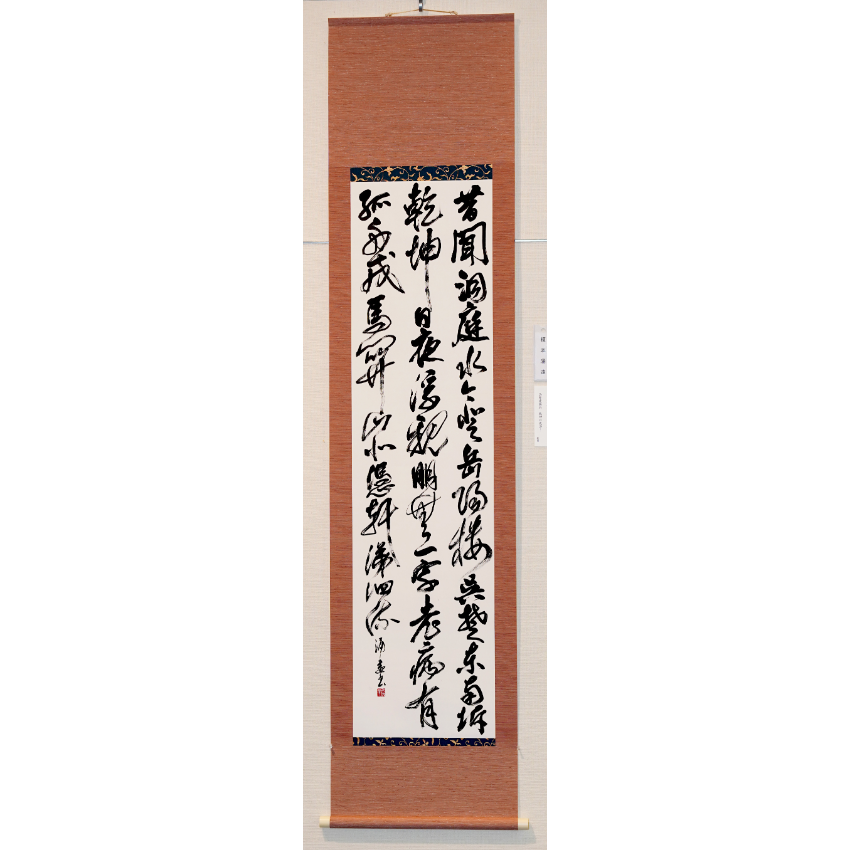 昔聞洞庭水今登岳陽樓呉楚東南坼
乾坤日夜浮親朋無一字老病有
孤舟戎馬關山北憑軒涕泗流
書